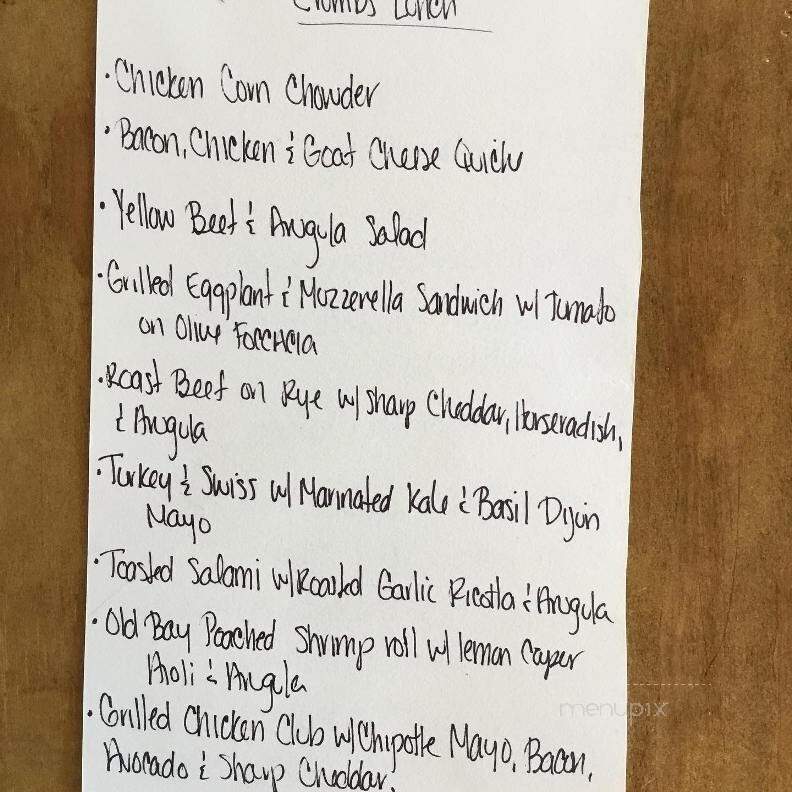 Crumbs Lunch
• Chicken Corn Chowder
• Bacon, Chicken & Goat Cheese Quiche
• Yellow Beet & Arugula Salad
• Grilled Eggplant & Mozzerella Sandwich w/ Tomato
on Olive Foccacia
• Roast Beef on Rye w/ Sharp Cheddar, Horseradish,
& Arugula
• Turkey & Swiss w/ Marinated Kale & Basil Dijon
Mayo
• Toasted Salami w/ Roasted Garlic Ricotta & Arugula
• Old Bay Poached Shrimp roll w/ lemon Caper
Aioli & Arugula
• Grilled Chicken Club w/ Chipotle Mayo, Bacon,
Avocado & Sharp Cheddar.
menupix